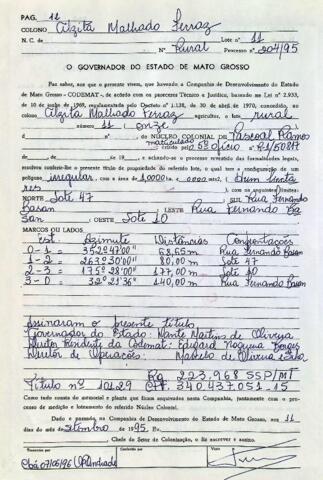 PAG. 12
COLONO Alzita Malhado Ferraz
N. C. de Lote nº 11
Nº Rural Processo nº 204/95
O GOVERNADOR DO ESTADO DE MATO GROSSO
Faz saber, aos que o presente virem, que havendo a Companhia de Desenvolvimento do Estado
de Mato Grosso - CODEMAT -, de acordo com os pareceres Técnico e Jurídico, baseando na Lei nº 2.933,
10 de junho de 1969, regulamentada pelo Decreto nº 1.138, de 30 de abril de 1970, concedido, ao colono
Alzita Malhado Ferraz agricultor, o lote rural
número 11 onze
do NÚCLEO COLONIAL DE Pascoal Ramos
matriculado 5º ofício nº 61/508A
de de 19 , e achando-se o processo revestido das formalidades legais,
resolveu conferir-lhe o presente título de propriedade do referido lote, o qual tem a configuração de um
polígono irregular, com a área de 1,0000
NORTE Lote 47 SUL Rua Fernando
Basan LESTE Rua Fernando Ba
San OESTE Lote 10
MARCOS OU LADOS
Est. Azimute Distâncias Confrontações
0-1 = 352º47'00" 68,65m Rua Fernando Basan
1-2 = 263º30'00" 80,00m Lote 47
2-3 = 175º28'00" 177,00m Lote 10
3-0 = 32º21'36" 140,00m Rua Fernando Basan
Assinaram o presente título
Governador do Estado: Dante Martins de Oliveira
Diretor de Operações: Marcelo de Oliveira
RG 223.968 SSP/MT
Título nº 10129 CPF. 340.437.051-15
Como tudo consta do memorial e planta que ficam arquivados nesta Companhia, juntamente com o pro-
cesso de medição e loteamento do referido Núcleo Colonial.
Dado e passado, na Companhia de Desenvolvimento do Estado de Mato Grosso, aos 11
dias do mês de Setembro de 1995. Eu,
, Chefe do Setor de Colonização, o fiz escrever e assino.
Conferido por
Visto
Cbá 07/05/96